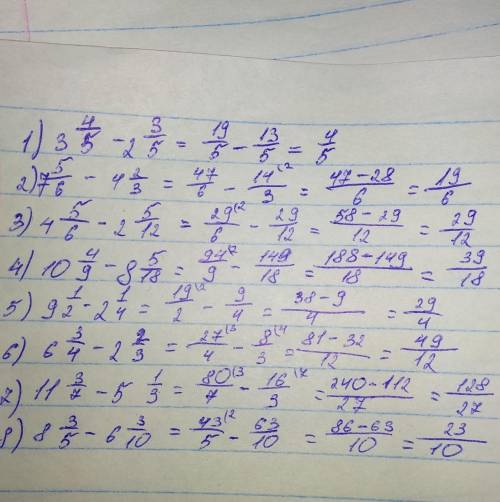 1) 3 4/5 - 2 3/5 = 19/5 - 13/5 = 4/5
2) 7 5/6 - 4 2/3 = 47/6 - 14(2/3 = 47-28/6 = 19/6
3) 4 5/6 - 2 5/12 = 29(2/6 - 29/12 = 58-29/12 = 29/12
4) 10 4/9 - 8 5/18 = 94(2/9 - 149/18 = 188-149/18 = 39/18
5) 9 1/2 - 2 1/4 = 19(2/2 - 9/4 = 38-9/4 = 29/4
6) 6 3/4 - 2 2/3 = 27(3/4 - 8(4/3 = 81-32/12 = 49/12
7) 11 3/7 - 5 1/3 = 80(3/7 - 16(7/3 = 240-112/27 = 128/27
8) 8 3/5 - 6 3/10 = 43(2/5 - 63/10 = 86-63/10 = 23/10